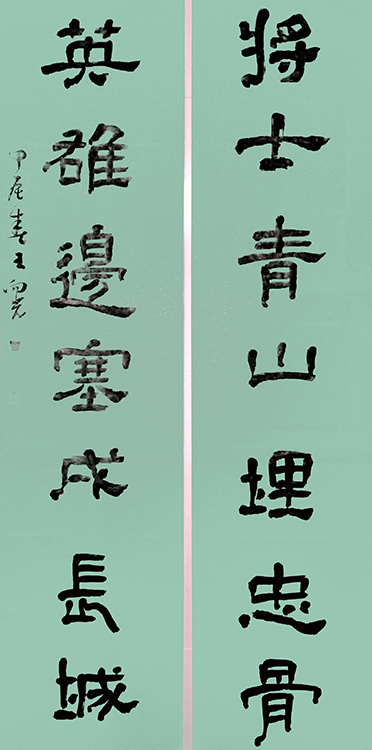 將士青山埋忠骨
英雄邊塞戍長城
甲辰春王向